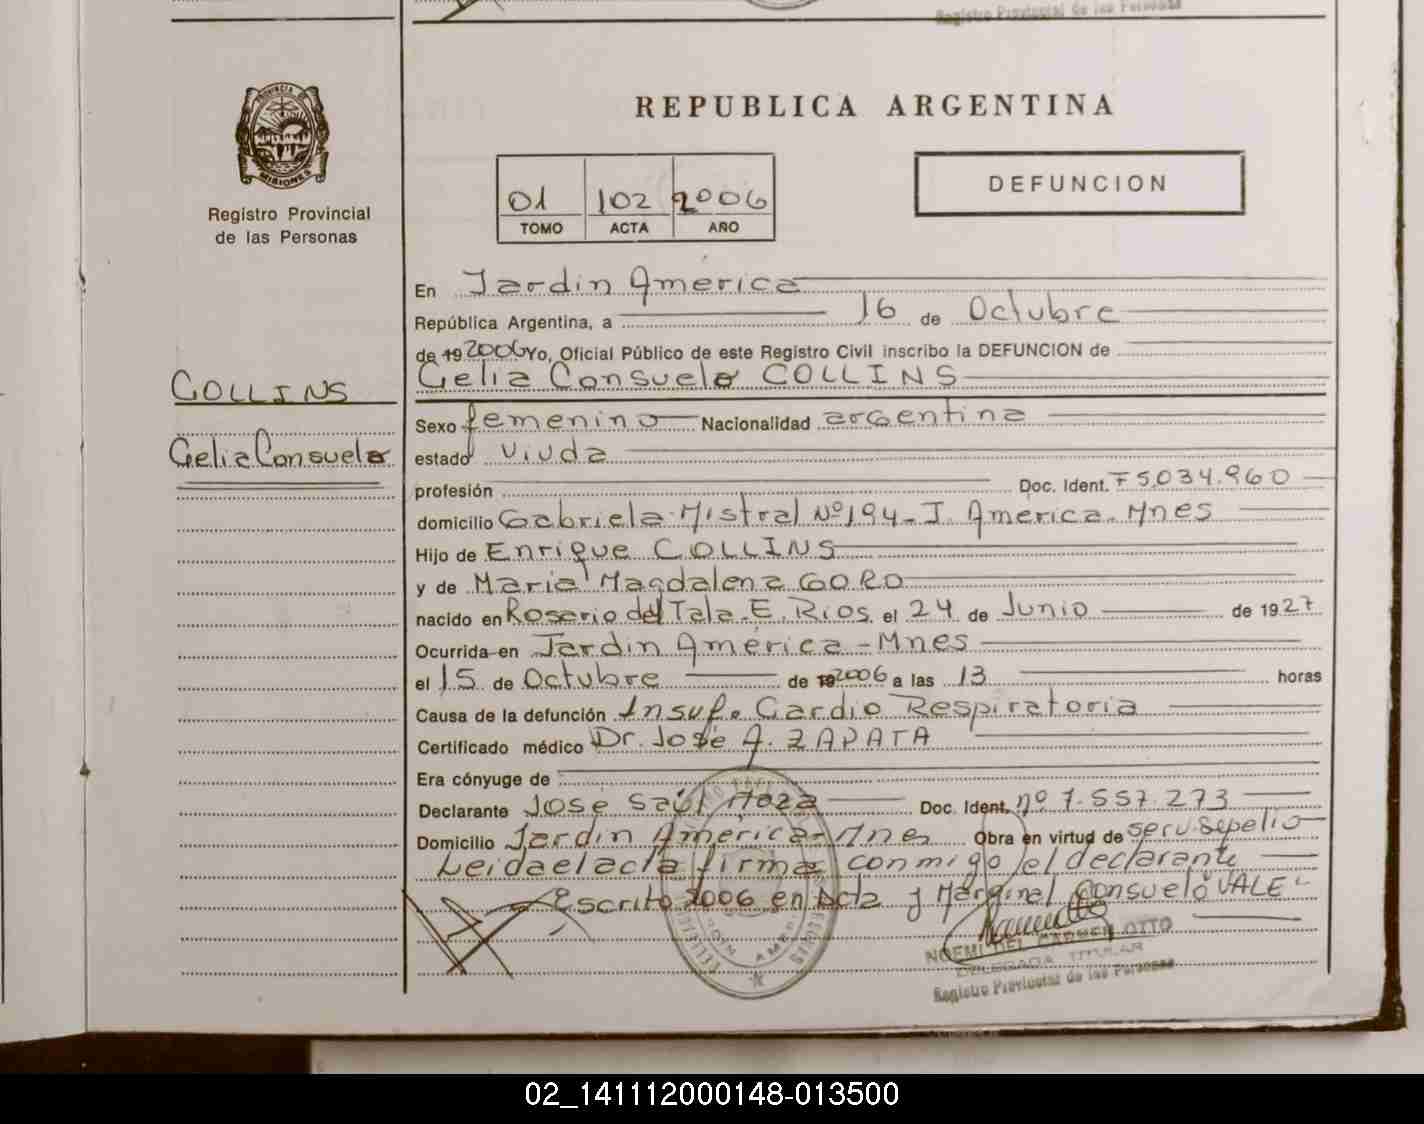 Registro Provincial de las Personas
PROVINCIA DE
MISIONES
Registro Provincial
de las Personas
REPUBLICA ARGENTINA
01 102 2006
TOMO ACTA AÑO
DEFUNCION
En Jardin América
República Argentina, a 16 de Octubre
de 19 2006 Yo, Oficial Público de este Registro Civil inscribo la DEFUNCION de
Celia Consuelo COLLINS
COLLINS
Celia Consuelo
Sexo femenino Nacionalidad argentina
estado viuda
profesión Doc. Ident. F 5.034.960
domicilio Gabriela Mistral Nº 194 - J. America - Mnes
Hijo de Enrique COLLINS
y de Maria Magdalena GORO
nacido en Rosario del Tala - E. Rios. el 24 de Junio de 1927
Ocurrida en Jardin América - Mnes
el 15 de Octubre de 19 2006 a las 13 horas
Causa de la defunción Insuf. Cardio Respiratoria
Certificado médico Dr. José A. ZAPATA
Era cónyuge de
Declarante José Saúl Doc. Ident. nº 7.557.273
Domicilio Jardin América - Mnes Obra en virtud de serv. sepelio
Leida el acta firma conmigo el declarante
Escrito 2006 en Acta y Marginal Consuelo "VALE"
NOEMI DEL CARMEN OTTO
DELEGADA TITULAR
Registro Provincial de las Personas
02_141112000148-013500